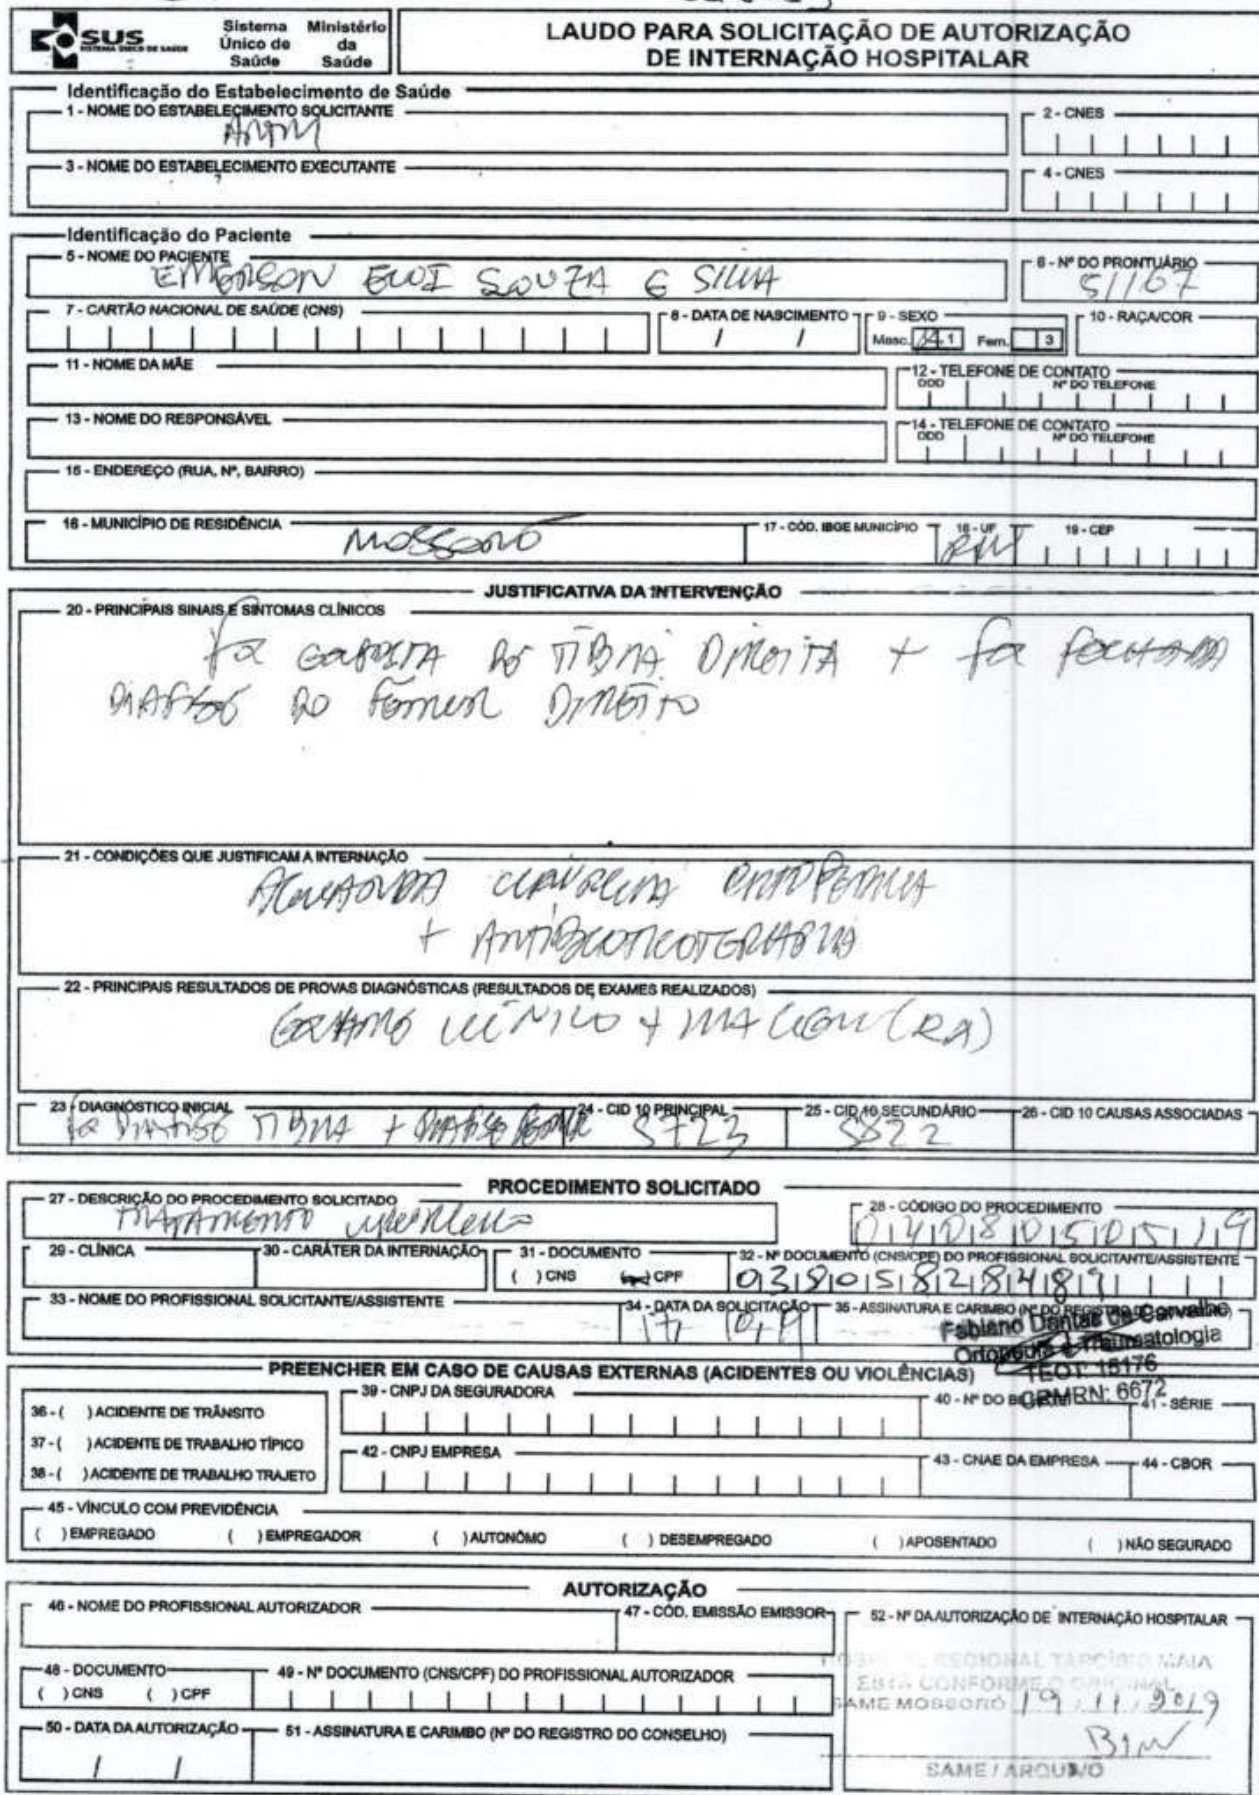 SUS
SISTEMA ÚNICO DE SAÚDE
Sistema Único de Saúde
Ministério da Saúde
LAUDO PARA SOLICITAÇÃO DE AUTORIZAÇÃO
DE INTERNAÇÃO HOSPITALAR
Identificação do Estabelecimento de Saúde
1 - NOME DO ESTABELECIMENTO SOLICITANTE
2 - CNES
3 - NOME DO ESTABELECIMENTO EXECUTANTE
4 - CNES
Identificação do Paciente
5 - NOME DO PACIENTE
EMERSON ELOI SOUZA E SILVA
6 - Nº DO PRONTUÁRIO
51167
7 - CARTÃO NACIONAL DE SAÚDE (CNS)
8 - DATA DE NASCIMENTO
/ /
9 - SEXO
Masc. 1 Fem. 3
10 - RAÇA/COR
11 - NOME DA MÃE
12 - TELEFONE DE CONTATO
DDD Nº DO TELEFONE
13 - NOME DO RESPONSÁVEL
14 - TELEFONE DE CONTATO
DDD Nº DO TELEFONE
15 - ENDEREÇO (RUA, Nº, BAIRRO)
16 - MUNICÍPIO DE RESIDÊNCIA
MOSSORÓ
17 - CÓD. IBGE MUNICÍPIO
18 - UF
RN
19 - CEP
JUSTIFICATIVA DA INTERVENÇÃO
20 - PRINCIPAIS SINAIS E SINTOMAS CLÍNICOS
fx EXPOSTA DE TÍBIA DIREITA + fx FECHADA
DIÁFISE DO FÊMUR DIREITO
21 - CONDIÇÕES QUE JUSTIFICAM A INTERNAÇÃO
CIRURGIA ORTOPÉDICA
+ ANTIBIOTICOTERAPIA
22 - PRINCIPAIS RESULTADOS DE PROVAS DIAGNÓSTICAS (RESULTADOS DE EXAMES REALIZADOS)
EXAME CLÍNICO + IMAGEM (RX)
23 - DIAGNÓSTICO INICIAL
fx DIÁFISE TÍBIA + DIÁFISE FÊMUR
24 - CID 10 PRINCIPAL
S723
25 - CID 10 SECUNDÁRIO
S822
26 - CID 10 CAUSAS ASSOCIADAS
PROCEDIMENTO SOLICITADO
27 - DESCRIÇÃO DO PROCEDIMENTO SOLICITADO
TRATAMENTO CIRÚRGICO
28 - CÓDIGO DO PROCEDIMENTO
0408050519
29 - CLÍNICA
30 - CARÁTER DA INTERNAÇÃO
31 - DOCUMENTO
( ) CNS ( ) CPF
32 - Nº DOCUMENTO (CNS/CPF) DO PROFISSIONAL SOLICITANTE/ASSISTENTE
03805828489
33 - NOME DO PROFISSIONAL SOLICITANTE/ASSISTENTE
34 - DATA DA SOLICITAÇÃO
17, 10, 19
35 - ASSINATURA E CARIMBO (Nº DO REGISTRO
Fabiano Dantas de Carvalho
Ortopedia e Traumatologia
TEOT: 15176
CRMRN: 6672
PREENCHER EM CASO DE CAUSAS EXTERNAS (ACIDENTES OU VIOLÊNCIAS)
36 - ( ) ACIDENTE DE TRÂNSITO
37 - ( ) ACIDENTE DE TRABALHO TÍPICO
38 - ( ) ACIDENTE DE TRABALHO TRAJETO
39 - CNPJ DA SEGURADORA
40 - Nº DO
41 - SÉRIE
42 - CNPJ EMPRESA
43 - CNAE DA EMPRESA
44 - CBOR
45 - VÍNCULO COM PREVIDÊNCIA
( ) EMPREGADO ( ) EMPREGADOR ( ) AUTONÔMO ( ) DESEMPREGADO ( ) APOSENTADO ( ) NÃO SEGURADO
AUTORIZAÇÃO
46 - NOME DO PROFISSIONAL AUTORIZADOR
47 - CÓD. EMISSÃO EMISSOR
48 - DOCUMENTO
( ) CNS ( ) CPF
49 - Nº DOCUMENTO (CNS/CPF) DO PROFISSIONAL AUTORIZADOR
50 - DATA DA AUTORIZAÇÃO
/ /
51 - ASSINATURA E CARIMBO (Nº DO REGISTRO DO CONSELHO)
52 - Nº DA AUTORIZAÇÃO DE INTERNAÇÃO HOSPITALAR
HOSPITAL REGIONAL TARCÍSIO MAIA
ESTÁ CONFORME O ORIGINAL
SAME MOSSORÓ 19, 11, 2019
SAME / ARQUIVO